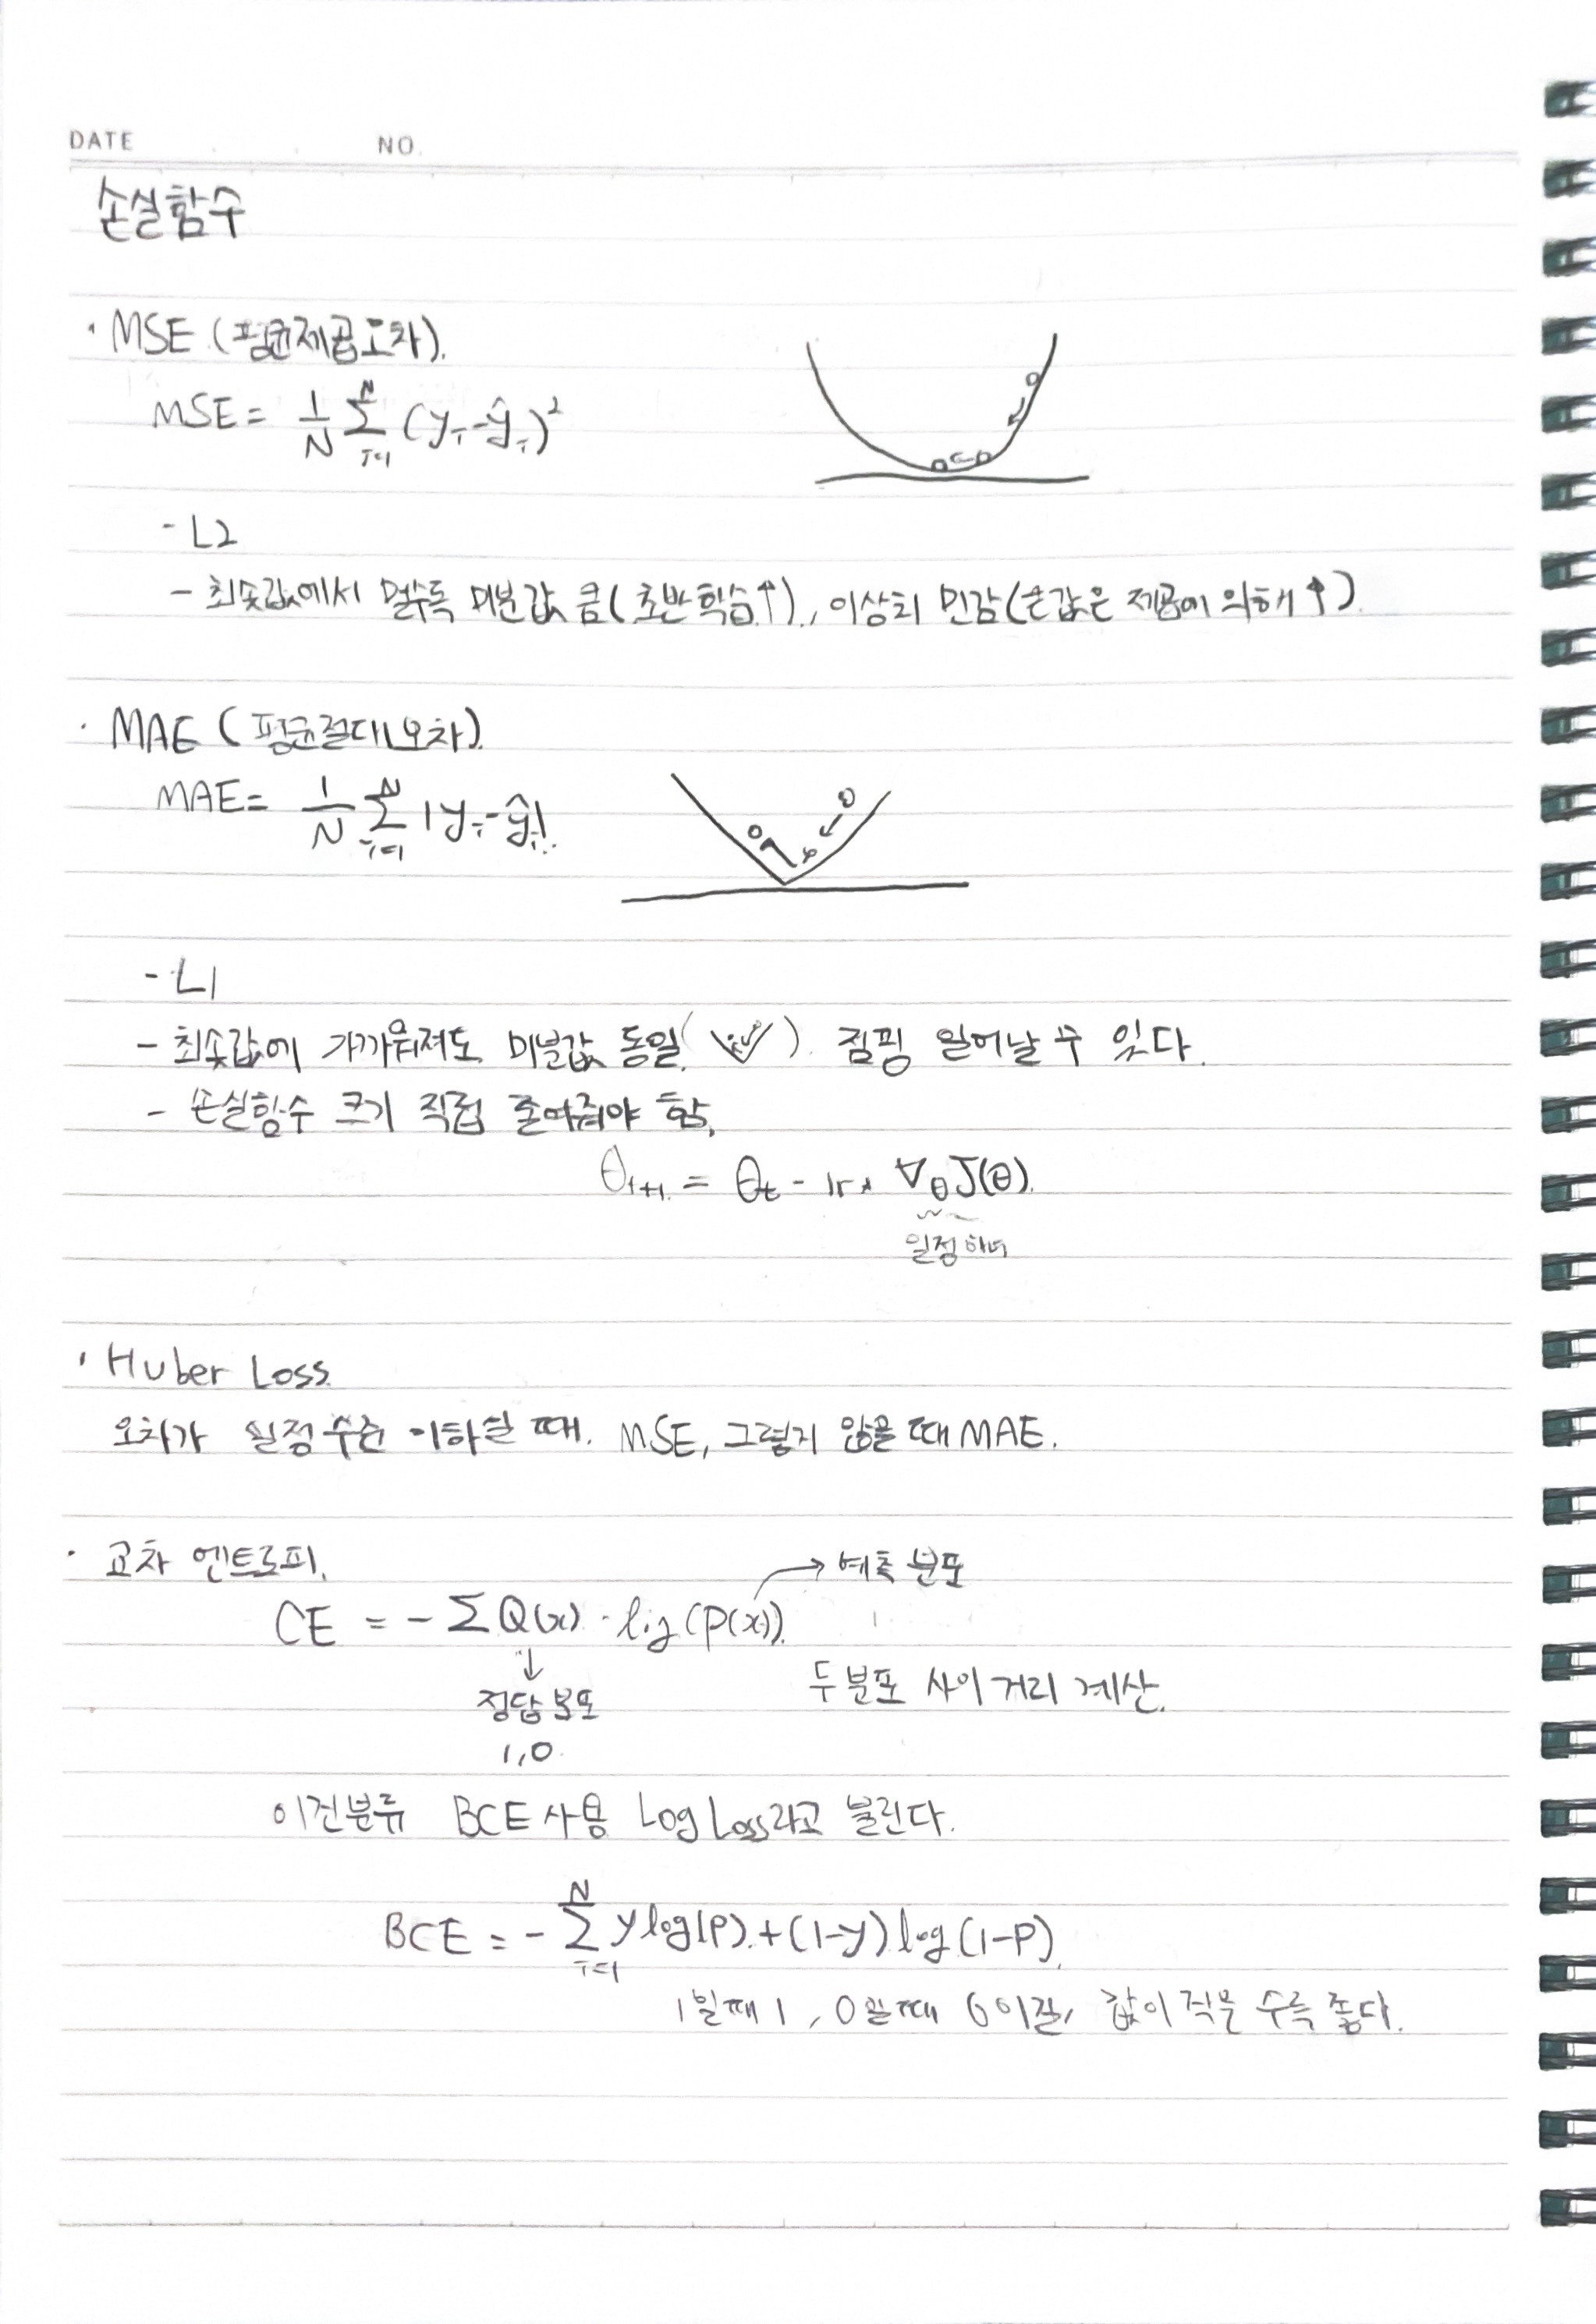 DATE NO.
손실함수
· MSE (평균제곱오차).
MSE = 1/N Σ_{i=1}^{N} (y_i - ŷ_i)²
- L2
- 최솟값에서 멀수록 미분값 큼(초반 학습↑), 이상치 민감(큰값은 제곱에 의해↑)
· MAE (평균절대오차).
MAE = 1/N Σ_{i=1}^{N} |y_i - ŷ_i|
- L1
- 최솟값에 가까워져도 미분값 동일( ) 점핑 일어날 수 있다.
- 손실함수 크기 직접 줄여줘야 함.
θ_{t+1} = θ_t - lr * ∇_θ J(θ)
일정하니
· Huber Loss
오차가 일정수준 이하일 때. MSE, 그렇지 않을 때 MAE.
· 교차 엔트로피.
→ 예측 분포
CE = - Σ Q(x) · log(P(x))
↓
정답분포
두분포 사이 거리 계산.
1,0
이진분류 BCE 사용 Log Loss라고 불린다.
BCE = - Σ_{i=1}^{N} y log(p) + (1-y) log (1-p)
1일때 1, 0일때 0 이길, 값이 적을 수록 좋다.